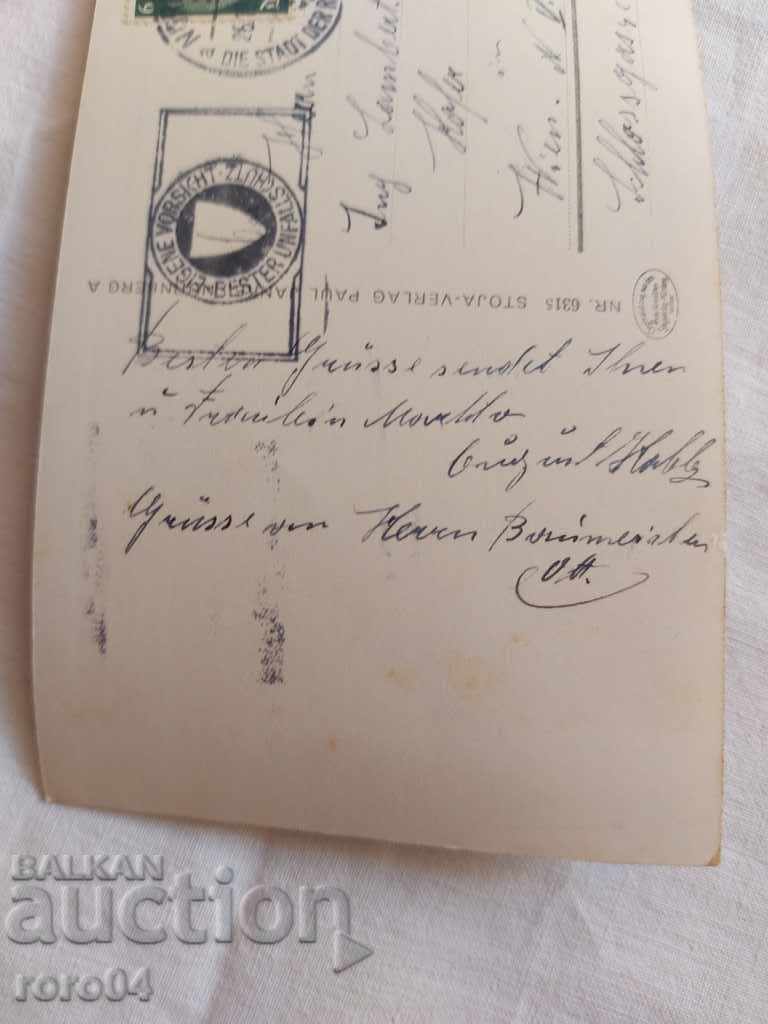 DIE STADT DER R
EIGENE VORSICHT · BESTER UNFALLSCHUTZ
Ing Lambert
Hofer
in
Wien.
Schlossgasse
NR. 6315 STOJA-VERLAG PAUL JANKE NÜRNBERG A
Besten Grüsse sendet Ihnen
u Fräulein Martha
August
Grüsse von Herrn Baumeister
Ott.
BALKAN
auction
roro04